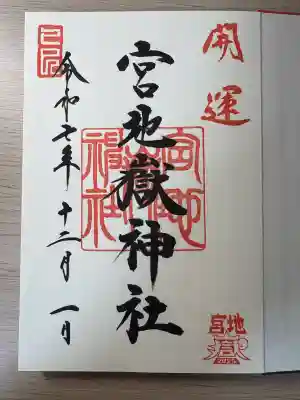 開運
宮地嶽神社
令和七年十二月一日
宮地嶽神社
宮地
2025